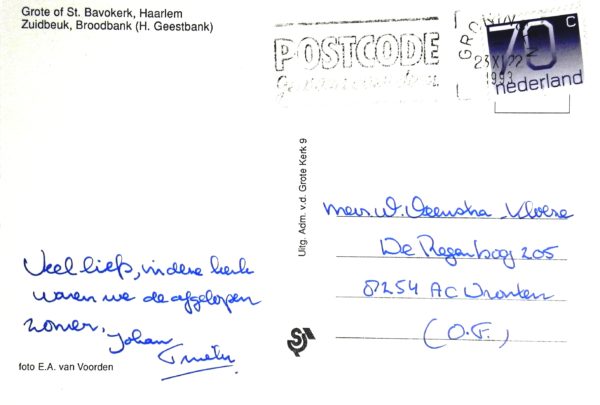 Grote of St. Bavokerk, Haarlem
Zuidbeuk, Broodbank (H. Geestbank)
POSTCODE
GRONIN
23.XI.22
1993
N
70 c
nederland
Uitg. Adm. v.d. Grote Kerk 9
Mevr. W. Veenstra - Kloeze
De Regenboog 205
8254 AC Dronten
(O.F.)
Veel liefs, in deze kerk
waren we de afgelopen
zomer. Johan
foto E.A. van Voorden